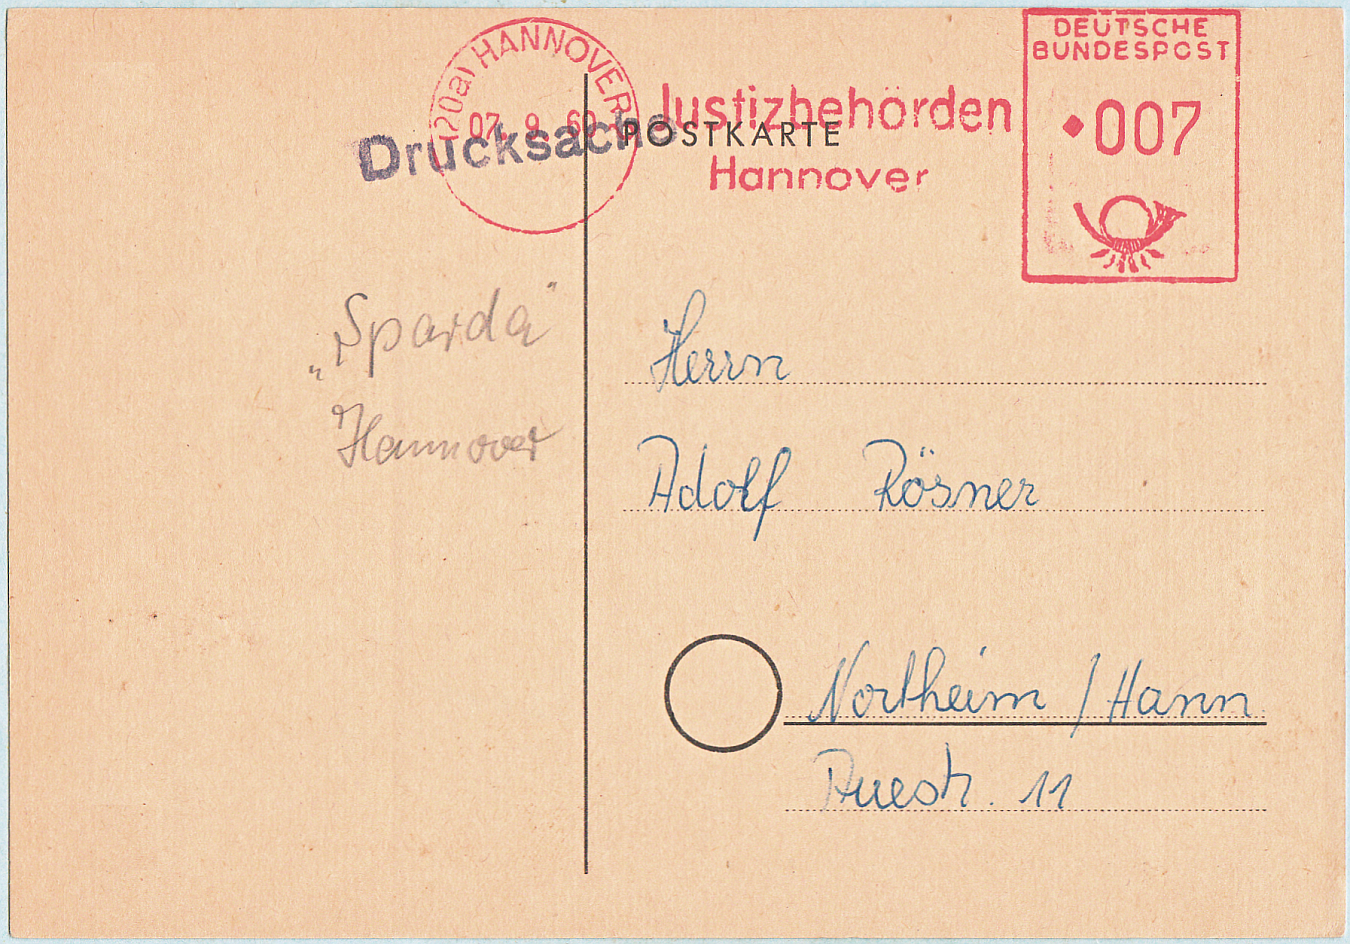 (20a) HANNOVER
07. 9. 60
Drucksache
POSTKARTE
Justizbehörden
Hannover
DEUTSCHE
BUNDESPOST
007
„Sparda“
Hannover
Herrn
Adolf Rösner
Northeim / Hann
11